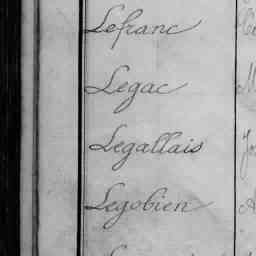 Lefranc
Legac
Legallais
Legobien